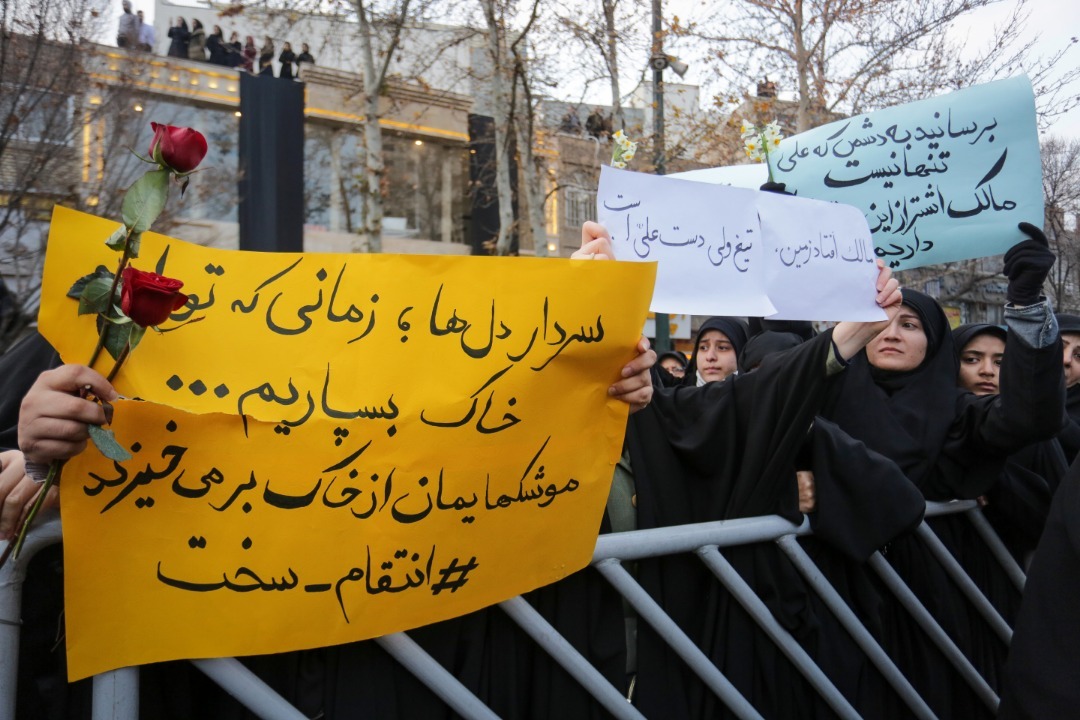 برسانید به دشمن که علی
تنها نیست
مالک اشتر از این
داریم
مالک افتاد زمین،
تیغ ولی دست علی است
سردار دل‌ها ؛ زمانی که تو
خاک بسپاریم ...
موشکهایمان از خاک بر می خیزند
#انتقام_سخت